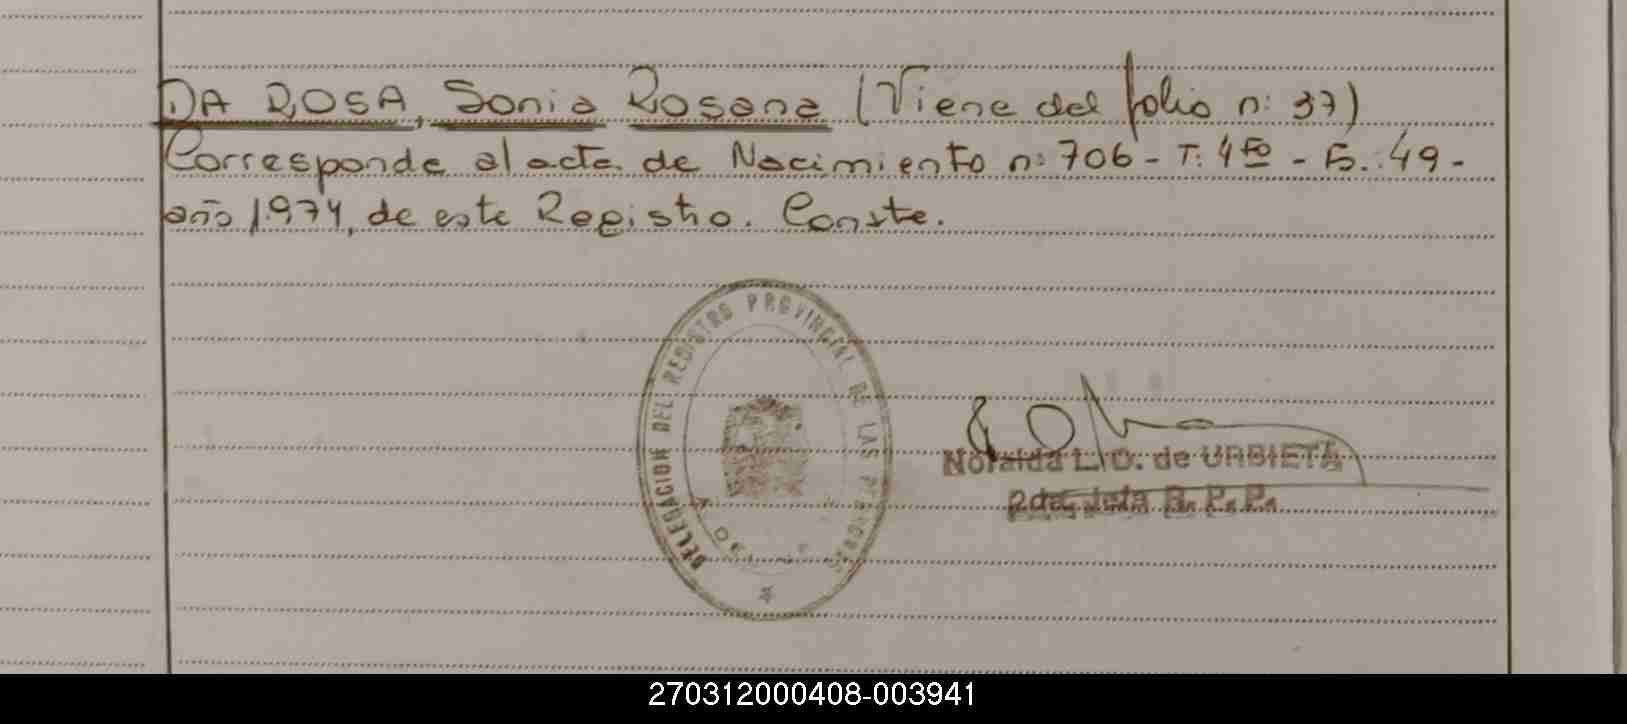 DA ROSA, Sonia Rosana (Viene del folio n: 37)
Corresponde al acta de Nacimiento n: 706 - T: 4to - F.: 49 -
año 1.974, de este Registro. Conste.
DELEGACION DEL REGISTRO PROVINCIAL DE LAS PERSONAS
Noralda L. O. de URBIETA
2da. Jefa R. P. P.
270312000408-003941